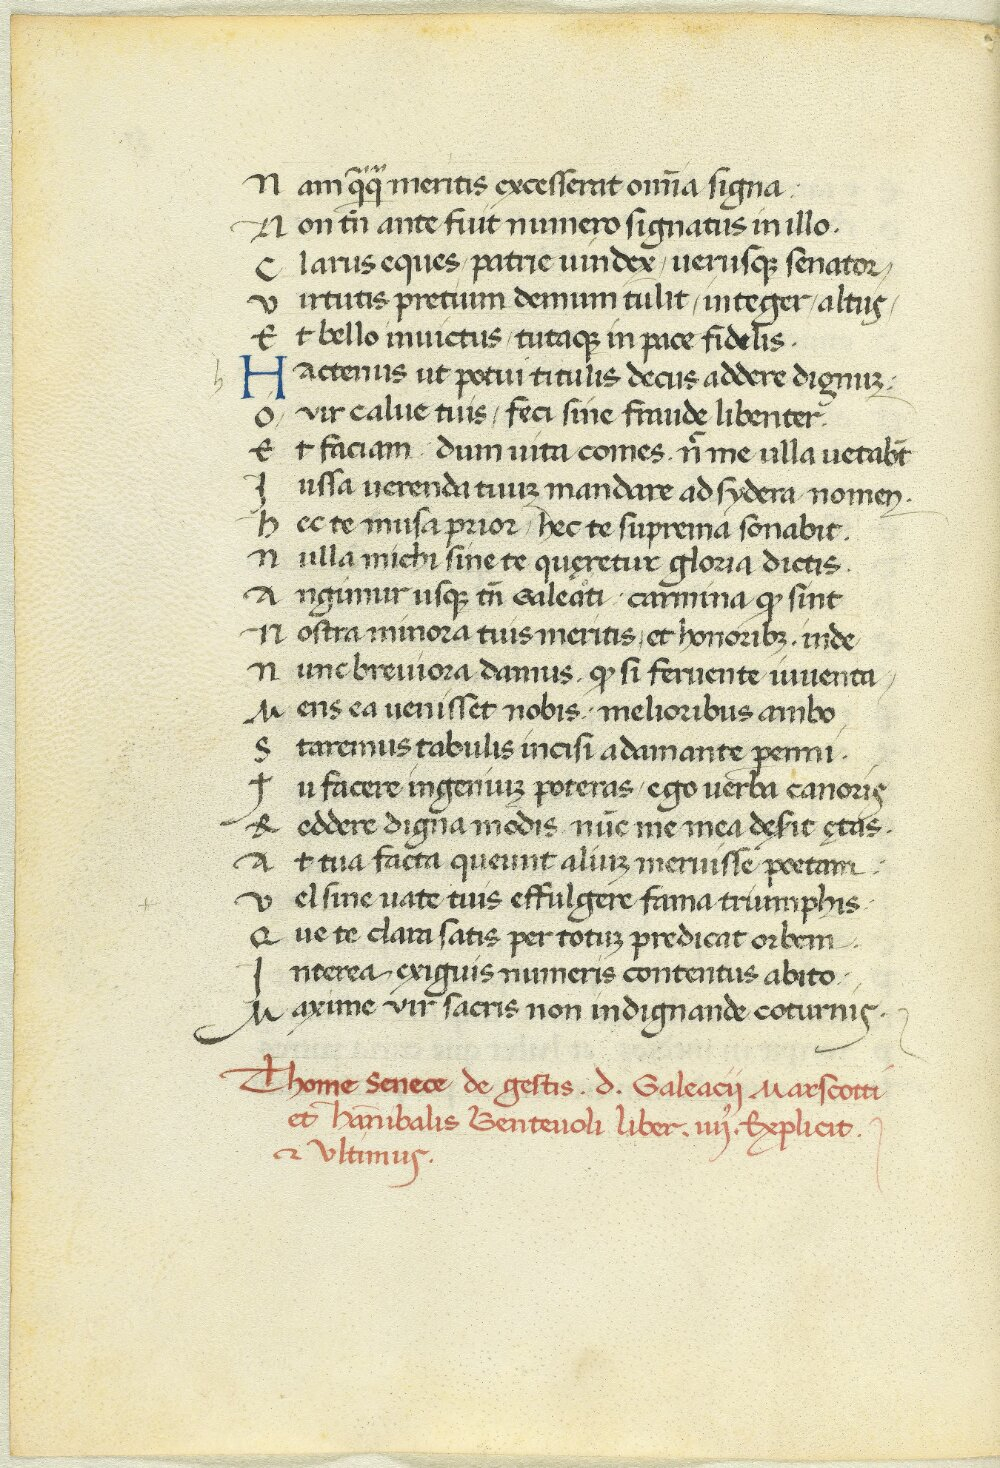 N am qͣqͣm meritis excesserat om̅ia signa :
N on tn̅ ante fuit numero signatus in illo .
C larus eques / patrie uindex / uerusqꝫ senator /
V irtutis pretium demum tulit / integer / altus /
E t bello inuictus / tutaqꝫ in pace fidelis .
h H actenus ut potui titulis decus addere dignuꝫ :
O / vir calue tuis / feci sine fraude libenter .
E t faciam . dum uita comes . n̅ me ulla uetabt̅
I ussa uerenda tuuꝫ mandare ad sydera nomen .
H ec te musa prior / hec te suprema sonabit .
N ulla michi sine te quęretur gloria dictis .
A ngimur usqꝫ tn̅ Galeaͦti . carmina ꝙ sint
N ostra minora tuis meritis / et honoribꝫ . inde
N unc breuiora damus . ꝙ si feruente iuuenta /
M ens ea uenisset nobis . melioribus ambo
S taremus tabulis incisi adamante penni .
T u facere ingeniuꝫ poteras / ego uerba canoris
R eddere digna modis nu̅c me mea dęsit ętas .
A t tua facta queunt aliuꝫ meruisse poetam .
V el sine uate tuis effulgere fama triumphis .
Q ue te clara satis per totuꝫ predicat orbem .
I nterea exiguis numeris contentus abito .
M axime vir sacris non indignande coturnis .
Thome Senece de gestis . d . Galeacij Marscotti
et Hannibalis Benteuoli liber . iiijꝰ . Explicit .
⁊ Vltimus .